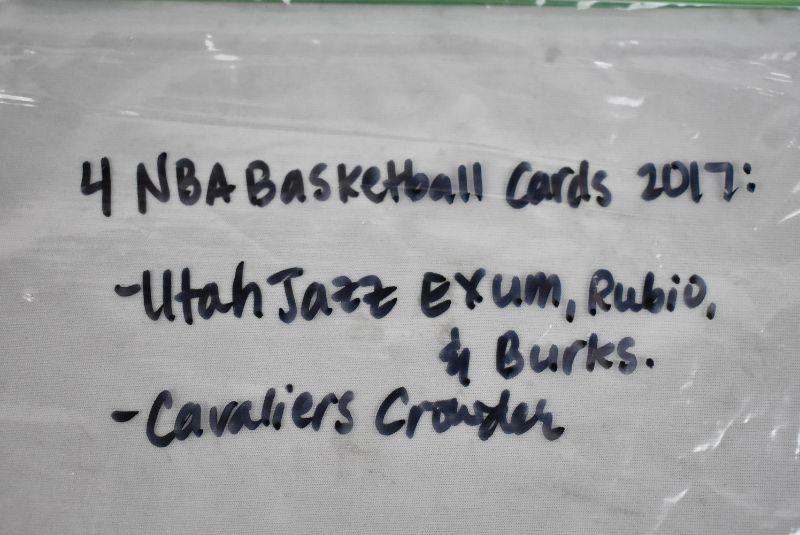 4 NBA Basketball Cards 2017:
-Utah Jazz Exum, Rubio,
& Burks.
-Cavaliers Crowder